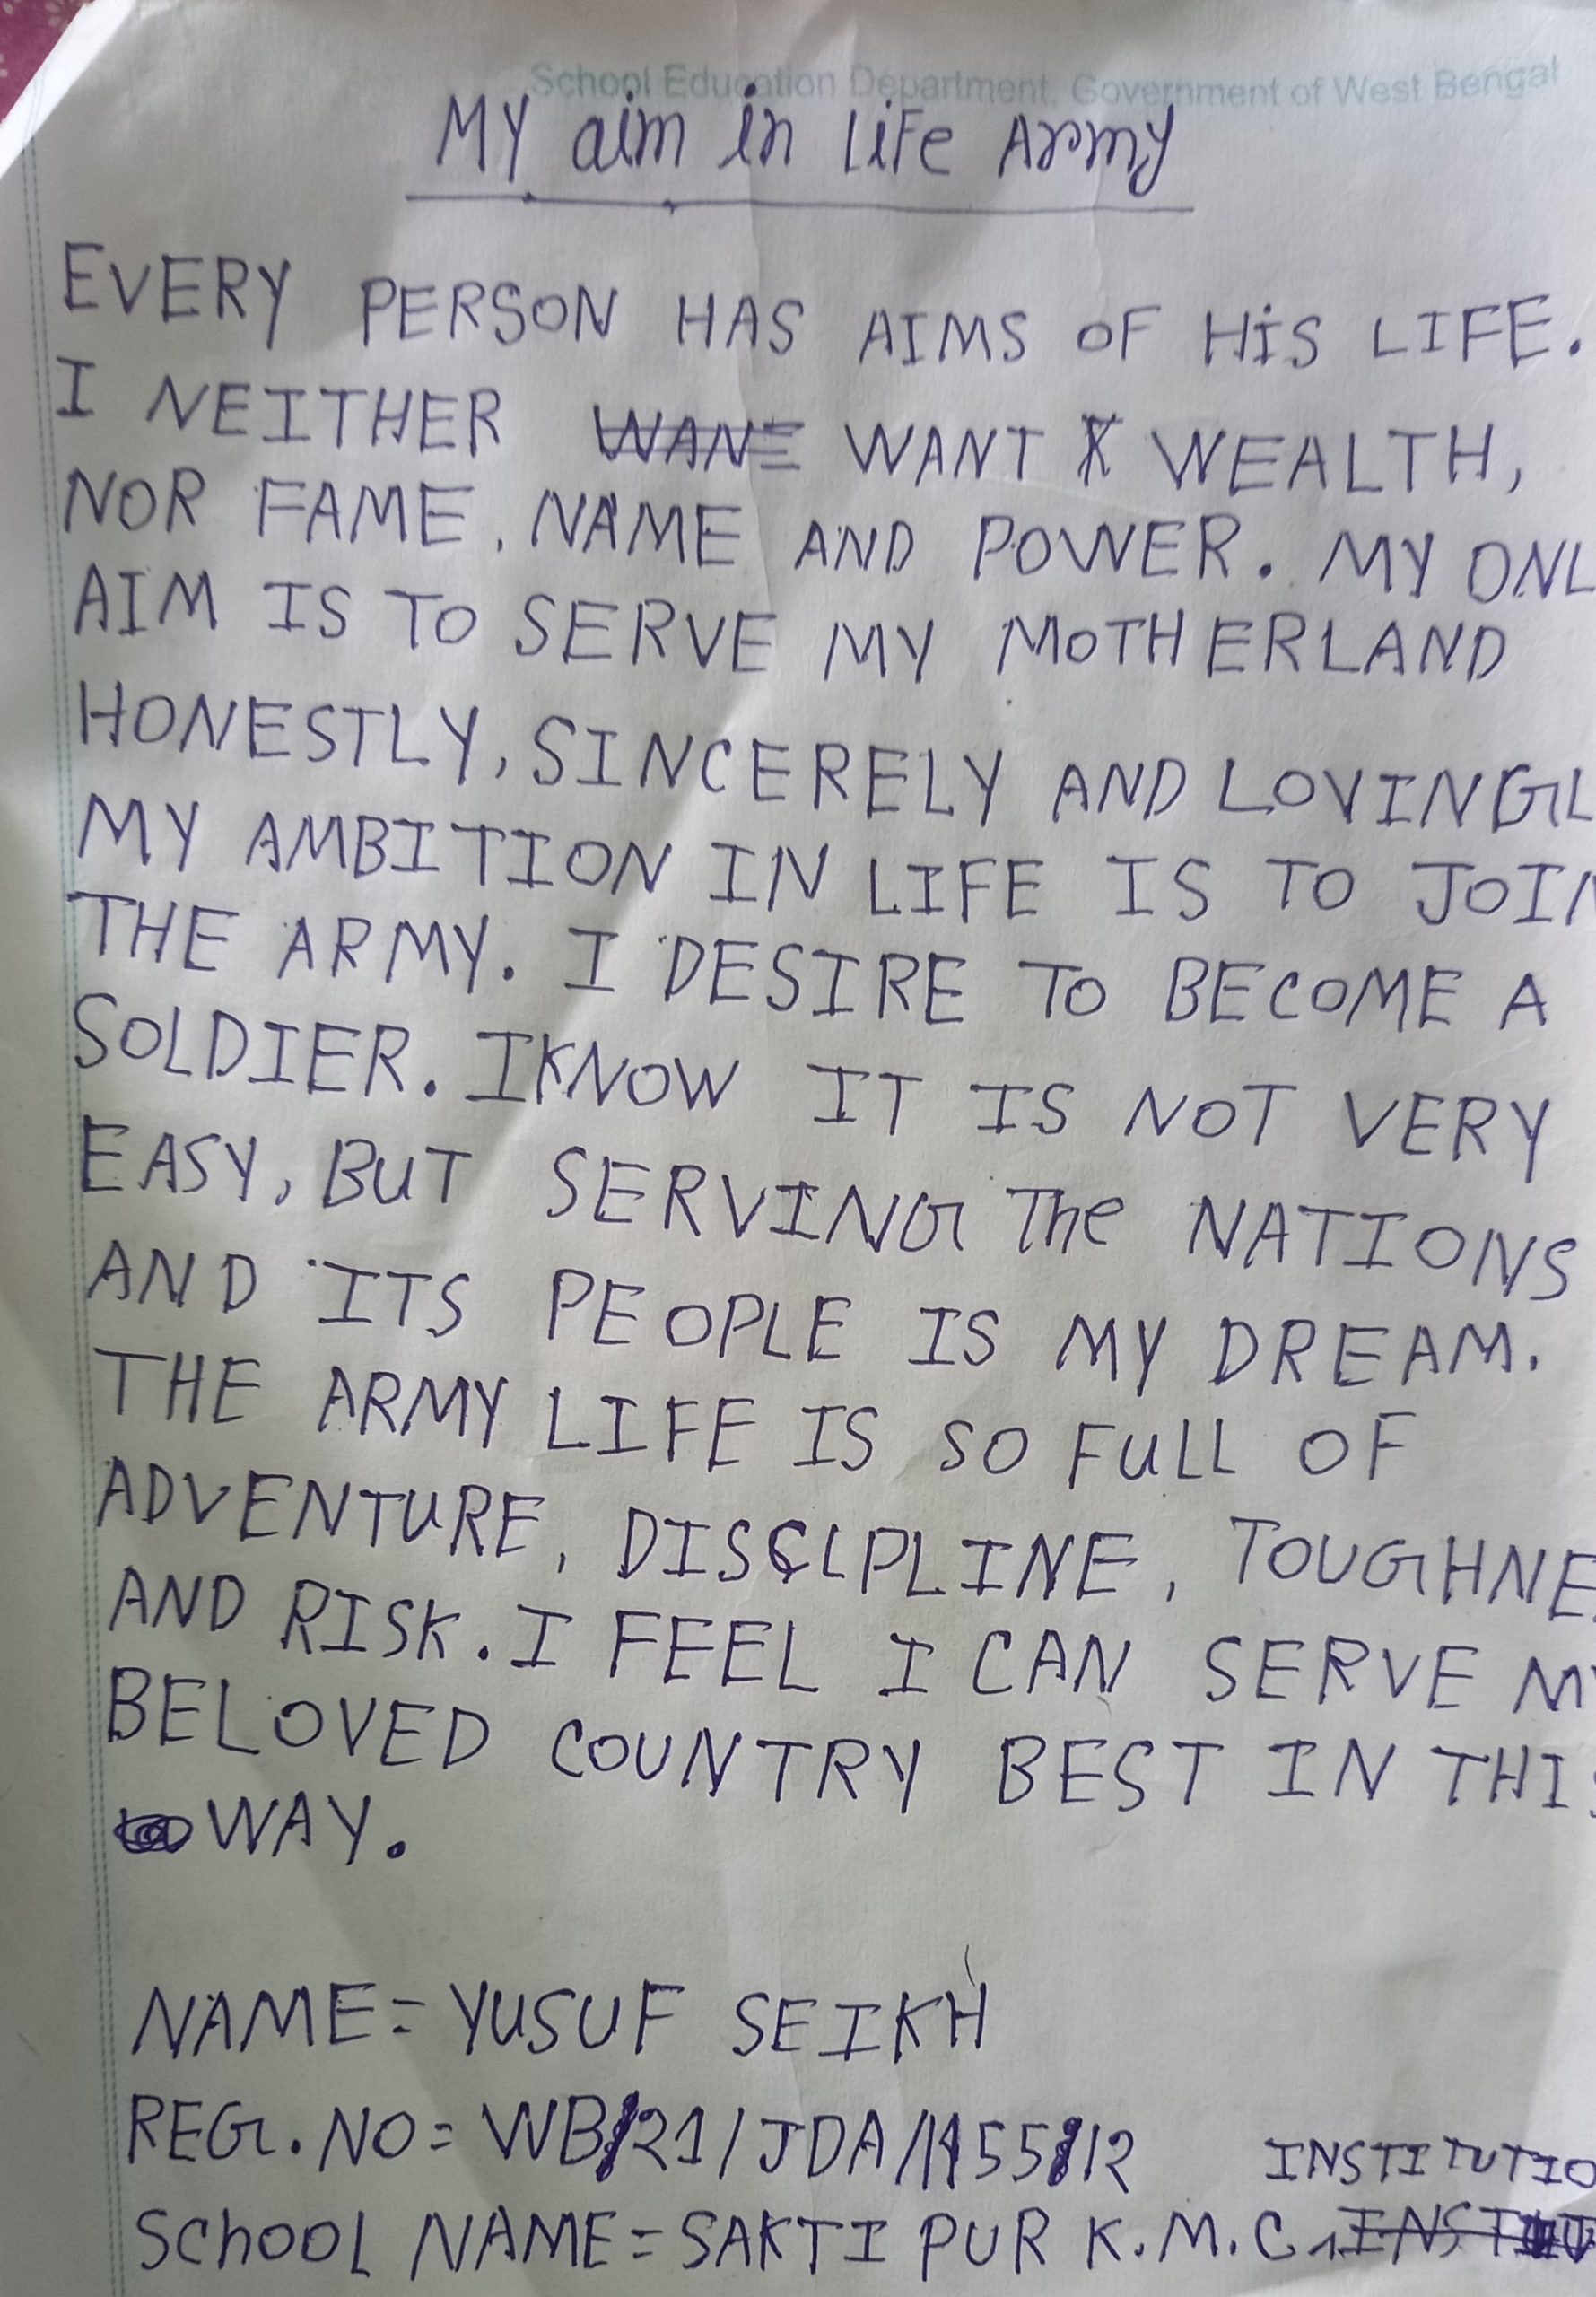 School Education Department, Government of West Bengal
My aim in Life Army
EVERY PERSON HAS AIMS OF HIS LIFE.
I NEITHER WANT WEALTH,
NOR FAME, NAME AND POWER. MY ONL
AIM IS TO SERVE MY MOTHERLAND
HONESTLY, SINCERELY AND LOVINGL
MY AMBITION IN LIFE IS TO JOIN
THE ARMY. I DESIRE TO BECOME A
SOLDIER. IKNOW IT IS NOT VERY
EASY, BUT SERVING The NATIONS
AND ITS PEOPLE IS MY DREAM.
THE ARMY LIFE IS SO FULL OF
ADVENTURE, DISCIPLINE, TOUGHNE
AND RISK. I FEEL I CAN SERVE MY
BELOVED COUNTRY BEST IN THIS
WAY.
NAME = YUSUF SEIKH
REG. NO = WB/21/JDA/
INSTITUTIO
SChOOL NAME = SAKTI PUR K.M.C.